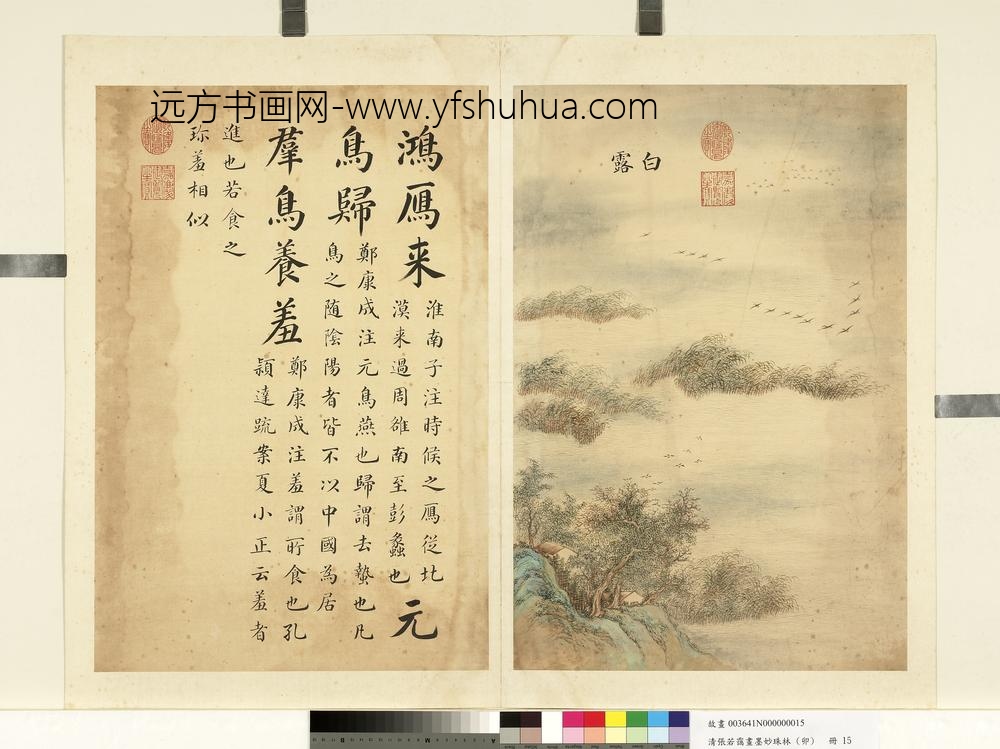 远方书画网-www.yfshuhua.com
白露
鴻鴈来
淮南子注時候之鴈従北
漠来過周雒南至彭蠡也
元
鳥歸
鄭康成注元鳥燕也歸謂去蟄也凡
鳥之随陰陽者皆不以中國為居
羣鳥養羞
鄭康成注羞謂所食也孔
穎達疏案夏小正云羞者
進也若食之
珎羞相似
故畫 003641N000000015
清張若靄畫墨妙珠林（卯） 冊 15